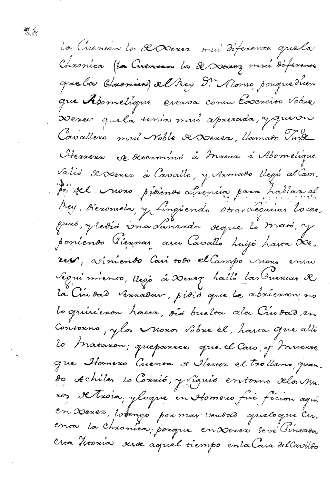 la Cuentan los de Xerez mui diferente que la
Chronica (la Cuentan los de Xerez mui diferente
que la Chronica) del Rey Dn. Alonso, porque dicen
que Abomelique estava con su Exercito sobre
Xerez que la tenia mui apretada, y que un
Cavallero mui Noble de Xerez, llamado
Herrera se determinó à matar à Abomelique
Salió de Xerez à Cavallo, y Armado llegó al cam-
po del Moro pidiendo audiencia para hablar al
Rey, y fingiendo
y le dió una lanzada de que lo mató, y
poniendo Piernas a su Cavallo huyó hacia Xe-
rez, viniendo casi todo el Campo Moro en su
seguimiento, llegó à Xerez halló las Puertas de
la Ciudad cerradas, pidió que le abrieran no
lo quisieron hacer, dió buelta a la Ciudad en
Contorno, y los Moros sobre el, hasta que alli
lo Mataron; que parece que el Caso, y Muerte
que Homero Cuenta de Hector el troyano, quan-
do Achiles lo Corrió, y siguió en torno de los Mu-
ros de Troia, y lo que en Homero fué ficcion aqui
en Xerez, lo tengo por mas verdad que lo que Cu-
enta la Chronica; porque en Xerez se vé Pintada
esta Istoria desde aquel tiempo en la Casa del Cavildo